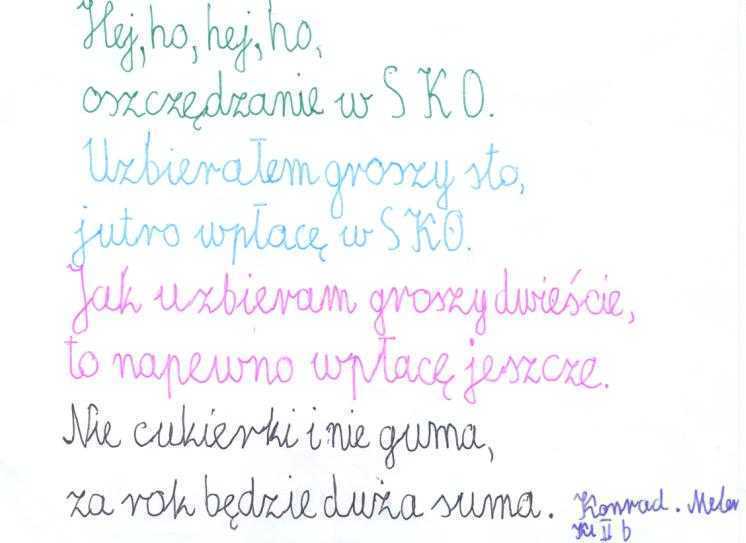 Hej, ho, hej, ho,
oszczędzanie w S K O.
Uzbierałem groszy sto,
jutro wpłacę w SKO.
Jak uzbieram groszy dwieście,
to napewno wpłacę jeszcze.
Nie cukierki i nie guma,
za rok będzie duża suma.
Konrad. Meler
Kl II b